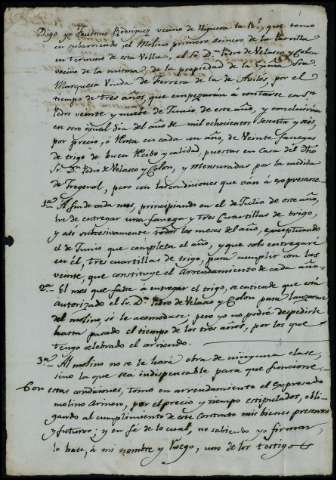 Digo yo Faustino Rodriguez vecino de Higuera la Rl, que tomo
en subarriendo el Molino primero arinero de la Parrilla
en termino de esta Villa, al Sr. Dn. Pedro de Velasco y Colon
vecino de la misma, de la propiedad de la Exma. Sra.
Marquesa Viuda de Ferrera de la de Aviles, por el
tiempo de tres años, que empezarán á contarse en Sn.
Pedro veinte y nueve de Junio de este año, y concluirán
en otro igual dia del año de mil ochocientos sesenta y seis,
por precio, ó Renta en cada un año, de Veinte fanegas
de trigo de buen Recibo y calidad puestas en Casa del dho
Sr. Dn. Pedro de Velasco y Colon, y mensuradas por la medida
de Fregenal, pero con las condiciones que ván á expresarse
1a. A fin de cada mes, principiando en el de Julio de este año,
he de entregar una fanega y tres Cuartillas de trigo,
y asi subcesivamente todos los meses del año, exceptuando
el de Junio que completa el año, y que solo entregaré
en él, tres cuartillas de trigo, para cumplir con las
veinte, que constituye el Arrendamiento de cada año.
2a. El mes que falte á entregar el trigo, se entiende que está
autorizado el Sr. Dn. Pedro de Velasco y Colon para lanzarme
del molino si le acomodase; pero yo no podré despedirme
hasta pasado el tiempo de los tres años, por los que
tengo celebrado el arriendo.
3a. Al molino no se le hará obra de ninguna clase,
sino la que sea indispensable para que funcione.
Con estas condiciones, tomo en arrendamiento el expresado
molino arinero, por el precio y tiempo estipulados, obli-
gando al cumplimiento de este Contrato mis bienes presentes
y futuros; y en fé de lo cual, no sabiendo yo firmar,
lo hace, á mi nombre y Ruego, uno de los testigos